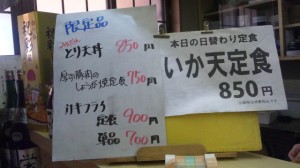 限定品
とり天丼 850円
厚切豚肉の
しょうが焼定食 750円
カキフライ
定食 900円
単品 700円
本日の日替わり定食
いか天定食
850円